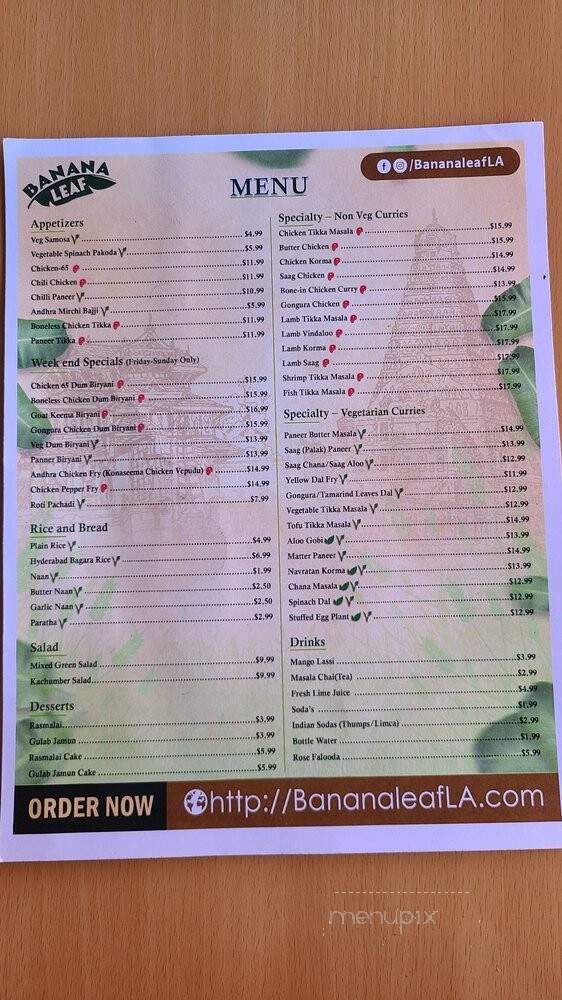 BANANA
LEAF
MENU
/BananaleafLA
Appetizers
Veg Samosa $4.99
Vegetable Spinach Pakoda $5.99
Chicken-65 $11.99
Chili Chicken $11.99
Chilli Paneer $10.99
Andhra Mirchi Bajji $5.99
Boneless Chicken Tikka $11.99
Paneer Tikka $11.99
Week end Specials (Friday-Sunday Only)
Chicken 65 Dum Biryani $15.99
Boneless Chicken Dum Biryani $15.99
Goat Keema Biryani $16.99
Gongura Chicken Dum Biryani $15.99
Veg Dum Biryani $13.99
Panner Biryani $13.99
Andhra Chicken Fry (Konaseema Chicken Vepudu) $14.99
Chicken Pepper Fry $14.99
Roti Pachadi $7.99
Rice and Bread
Plain Rice $4.99
Hyderabad Bagara Rice $6.99
Naan $1.99
Butter Naan $2.50
Garlic Naan $2.50
Paratha $2.99
Salad
Mixed Green Salad $9.99
Kachumber Salad $9.99
Desserts
Rasmalai $3.99
Gulab Jamun $3.99
Rasmalai Cake $5.99
Gulab Jamun Cake $5.99
Specialty – Non Veg Curries
Chicken Tikka Masala $15.99
Butter Chicken $15.99
Chicken Korma $14.99
Saag Chicken $14.99
Bone-in Chicken Curry $13.99
Gongura Chicken $15.99
Lamb Tikka Masala $17.99
Lamb Vindaloo $17.99
Lamb Korma $17.99
Lamb Saag $17.99
Shrimp Tikka Masala $17.99
Fish Tikka Masala $17.99
Specialty – Vegetarian Curries
Paneer Butter Masala $14.99
Saag (Palak) Paneer $13.99
Saag Chana/Saag Aloo $12.99
Yellow Dal Fry $11.99
Gongura/Tamarind Leaves Dal $12.99
Vegetable Tikka Masala $12.99
Tofu Tikka Masala $14.99
Aloo Gobi $13.99
Matter Paneer $14.99
Navratan Korma $13.99
Chana Masala $12.99
Spinach Dal $12.99
Stuffed Egg Plant $12.99
Drinks
Mango Lassi $3.99
Masala Chai(Tea) $2.99
Fresh Lime Juice $4.99
Soda's $1.99
Indian Sodas (Thumps/Limca) $2.99
Bottle Water $1.99
Rose Falooda $5.99
ORDER NOW
http://BananaleafLA.com
menupix